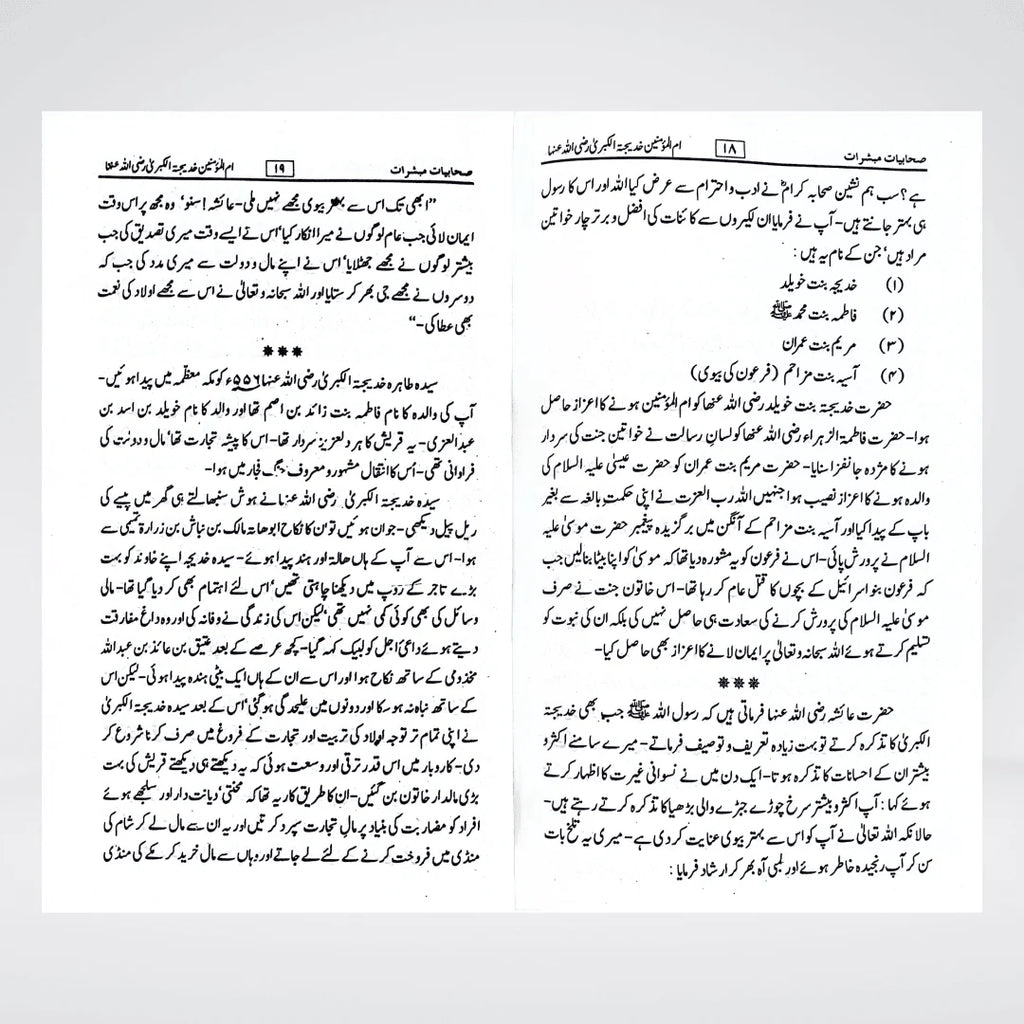 صحابیات مبشرات ۱۸ ام المؤمنین خدیجۃ الکبریٰ رضی اللہ عنہا
ہے؟ سب ہم نشین صحابہ کرامؓ نے ادب و احترام سے عرض کیا اللہ اور اس کا رسول
ہی بہتر جانتے ہیں۔ آپ نے فرمایا ان لکیروں سے کائنات کی افضل و برتر چار خواتین
مراد ہیں‘ جن کے نام یہ ہیں:
(۱) خدیجہ بنت خویلد
(۲) فاطمہ بنت محمد ﷺ
(۳) مریم بنت عمران
(۴) آسیہ بنت مزاحم (فرعون کی بیوی)
حضرت خدیجۃ بنت خویلد رضی اللہ عنھا کو ام المؤمنین ہونے کا اعزاز حاصل
ہوا۔ حضرت فاطمۃ الزہراء رضی اللہ عنھا کو لسانِ رسالت نے خواتین جنت کی سردار
ہونے کا مژدہ جانفزا سنایا۔ حضرت مریم بنت عمران کو حضرت عیسیٰ علیہ السلام کی
والدہ ہونے کا اعزاز نصیب ہوا جنہیں اللہ رب العزت نے اپنی حکمتِ بالغہ سے بغیر
باپ کے پیدا کیا اور آسیہ بنت مزاحم کے آنگن میں برگزیدہ پیغمبر حضرت موسیٰ علیہ
السلام نے پرورش پائی۔ اس نے فرعون کو یہ مشورہ دیا تھا کہ موسیٰ کو اپنا بیٹا بنالیں جب
کہ فرعون بنو اسرائیل کے بچوں کا قتل عام کر رہا تھا۔ اس خاتون جنت نے صرف
موسیٰ علیہ السلام کی پرورش کرنے کی سعادت ہی حاصل نہیں کی بلکہ ان کی نبوت کو
تسلیم کرتے ہوئے اللہ سبحانہ و تعالیٰ پر ایمان لانے کا اعزاز بھی حاصل کیا۔
***
حضرت عائشہ رضی اللہ عنہا فرماتی ہیں کہ رسول اللہ ﷺ جب بھی خدیجۃ
الکبریٰ کا تذکرہ کرتے تو بہت زیادہ تعریف و توصیف فرماتے۔ میرے سامنے اکثر و
بیشتر ان کے احسانات کا تذکرہ ہوتا۔ ایک دن میں نے نسوانی غیرت کا اظہار کرتے
ہوئے کہا: آپ اکثر و بیشتر سرخ چوڑے جبڑے والی بڑھیا کا تذکرہ کرتے رہتے ہیں۔
حالانکہ اللہ تعالیٰ نے آپ کو اس سے بہتر بیوی عنایت کر دی ہے۔ میری یہ تلخ بات
سن کر آپ رنجیدہ خاطر ہوئے اور لمبی آہ بھر کر ارشاد فرمایا:
صحابیات مبشرات ۱۹ ام المؤمنین خدیجۃ الکبریٰ رضی اللہ عنھا
”ابھی تک اس سے بہتر بیوی مجھے نہیں ملی۔ عائشہ! سنو‘ وہ مجھ پر اس وقت
ایمان لائی جب عام لوگوں نے میرا انکار کیا‘ اس نے ایسے وقت میری تصدیق کی جب
بیشتر لوگوں نے مجھے جھٹلایا‘ اس نے اپنے مال و دولت سے میری مدد کی جب کہ
دوسروں نے مجھے جی بھر کر ستایا اور اللہ سبحانہ و تعالیٰ نے اس سے مجھے اولاد کی نعمت
بھی عطا کی۔“
***
سیدہ طاہرہ خدیجۃ الکبریٰ رضی اللہ عنھا ۵۵۶ء کو مکہ معظمہ میں پیدا ہوئیں۔
آپ کی والدہ کا نام فاطمہ بنت زائد بن اصم تھا اور والد کا نام خویلد بن اسد بن
عبدالعزی۔ یہ قریش کا ہر دلعزیز سردار تھا۔ اس کا پیشہ تجارت تھا‘ مال و دولت کی
فراوانی تھی۔ اُس کا انتقال مشہور و معروف جنگ فجار میں ہوا۔
سیدہ خدیجۃ الکبریٰ رضی اللہ عنہا نے ہوش سنبھالتے ہی گھر میں پیسے کی
ریل پیل دیکھی۔ جوان ہوئیں تو ان کا نکاح ابوھالہ مالک بن نباش بن زرارۃ تمیمی سے
ہوا۔ اس سے آپ کے ہاں ھالہ اور ہند پیدا ہوئے۔ سیدہ خدیجہ اپنے خاوند کو بہت
بڑے تاجر کے روپ میں دیکھنا چاہتی تھیں‘ اس لئے اہتمام بھی کر دیا گیا تھا۔ مالی
وسائل کی بھی کوئی کمی نہیں تھی‘ لیکن اس کی زندگی نے وفا نہ کی اور وہ داغِ مفارقت
دیتے ہوئے داعئ اجل کو لبیک کہہ گیا۔ کچھ عرصے کے بعد عتیق بن عائذ بن عبداللہ
مخذومی کے ساتھ نکاح ہوا اور اس سے ان کے ہاں ایک بیٹی ہندہ پیدا ہوئی۔ لیکن اس
کے ساتھ نباہ نہ ہو سکا اور دونوں میں علیحدگی ہو گئی‘ اس کے بعد سیدہ خدیجۃ الکبریٰ
نے اپنی تمام تر توجہ اولاد کی تربیت اور تجارت کے فروغ میں صرف کرنا شروع کر
دی۔ کاروبار میں اس قدر ترقی اور وسعت ہوئی کہ یہ دیکھتے ہی دیکھتے قریش کی بہت
بڑی مالدار خاتون بن گئیں۔ ان کا طریق کار یہ تھا کہ محنتی‘ دیانت دار اور سلجھے ہوئے
افراد کو مضاربت کی بنیاد پر مالِ تجارت سپرد کرتیں اور یہ ان سے مال لے کر شام کی
منڈی میں فروخت کرنے کے لئے لے جاتے اور وہاں سے مال خرید کر مکے کی منڈی